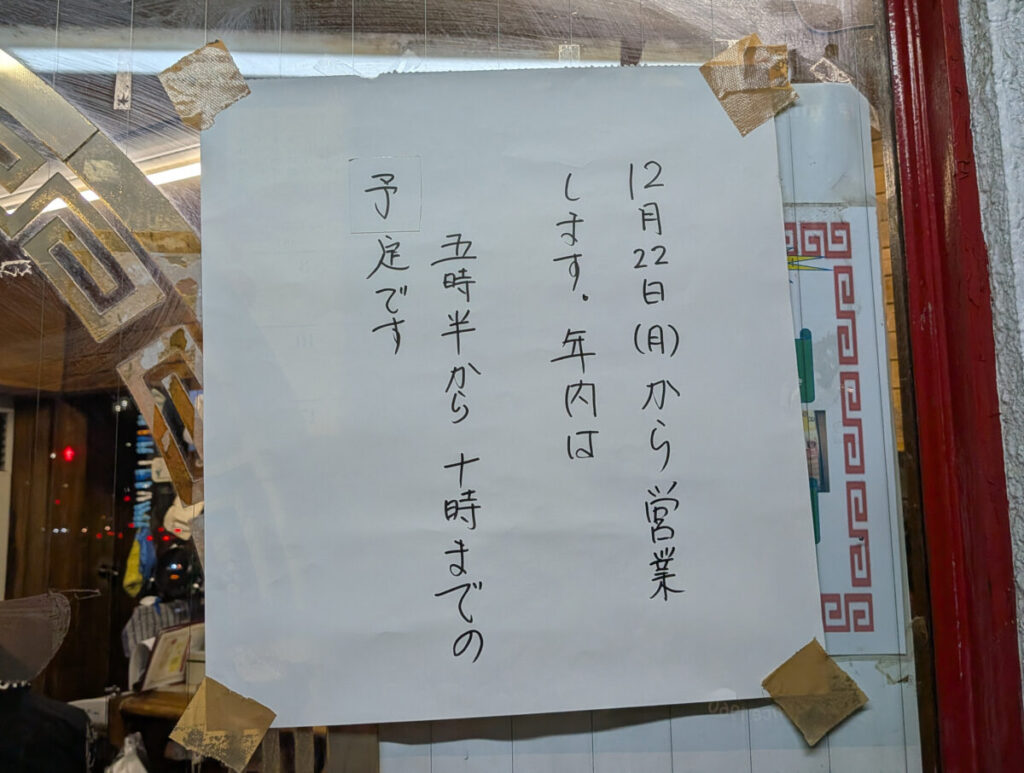 12月22日(月)から営業
します。年内は
五時半から十時までの
予定です